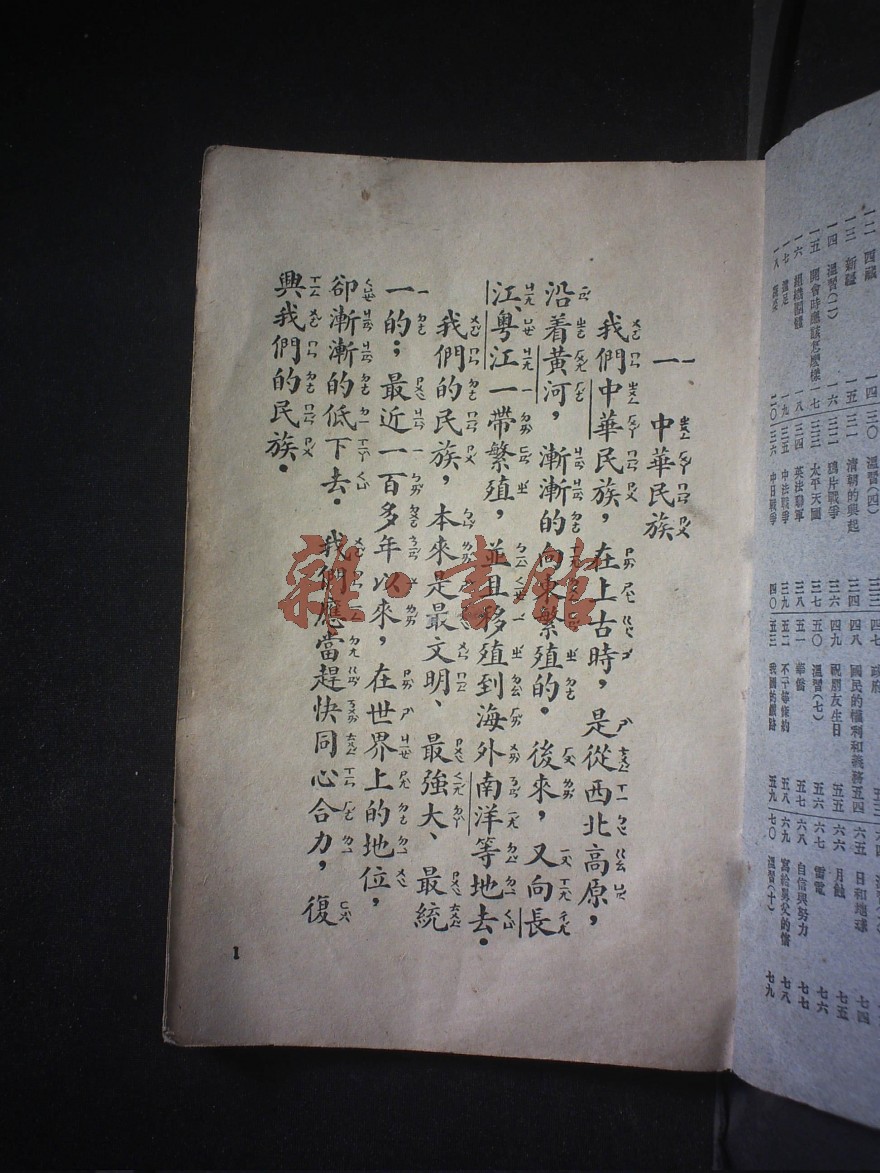 一 中華民族
我們中華民族，在上古時，是從西北高原，
沿着黃河，漸漸的向東繁殖的。後來，又向長
江、粵江一帶繁殖，並且移殖到海外南洋等地去。
我們的民族，本來是最文明、最強大、最統
一的；最近一百多年以來，在世界上的地位，
卻漸漸的低下去。我們應當趕快同心合力，復
興我們的民族。
1
雜·書館
一二 西藏
一三 新疆 一五
一四 溫習(一) 一六
一五 開會時應該怎麼樣 一七
一六 組織團體 一八
一七 遠足 一九
二〇
三〇 溫習(四)
三一 清朝的興起
三二 鴉片戰爭
三三 太平天國
三四 英法聯軍
三五 中法戰爭
三六 中日戰爭 四〇
四七 政府
四八 國民的權利和義務 五四
四九 祝朋友生日 五五
五〇 溫習(七) 五六
五一 華僑 五七
五二 不平等條約 五八
五三 我國的鐵路 五九
六五 日和地球
六六 月蝕 七五
六七 雷電 七六
六八 自信與努力 七七
六九 寫給舅父的信 七八
七〇 溫習(十) 七九